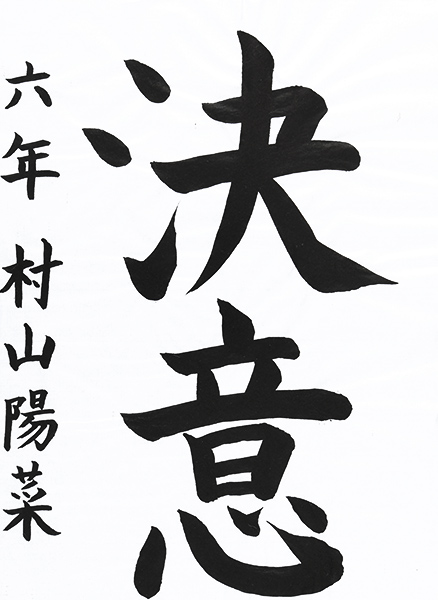 決意
六年 村山陽菜